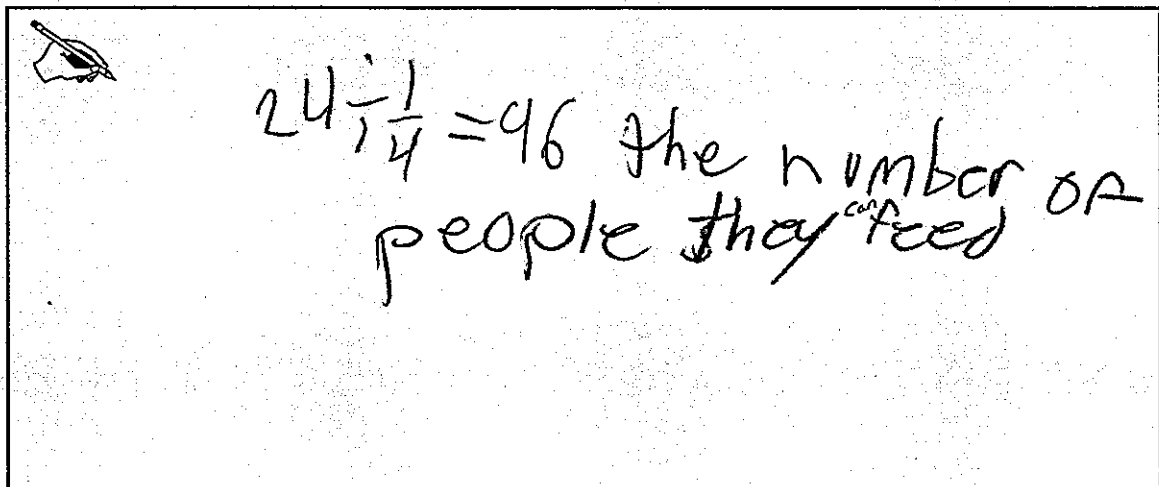 24 ÷ 1/4 = 96 the number of
people they can feed